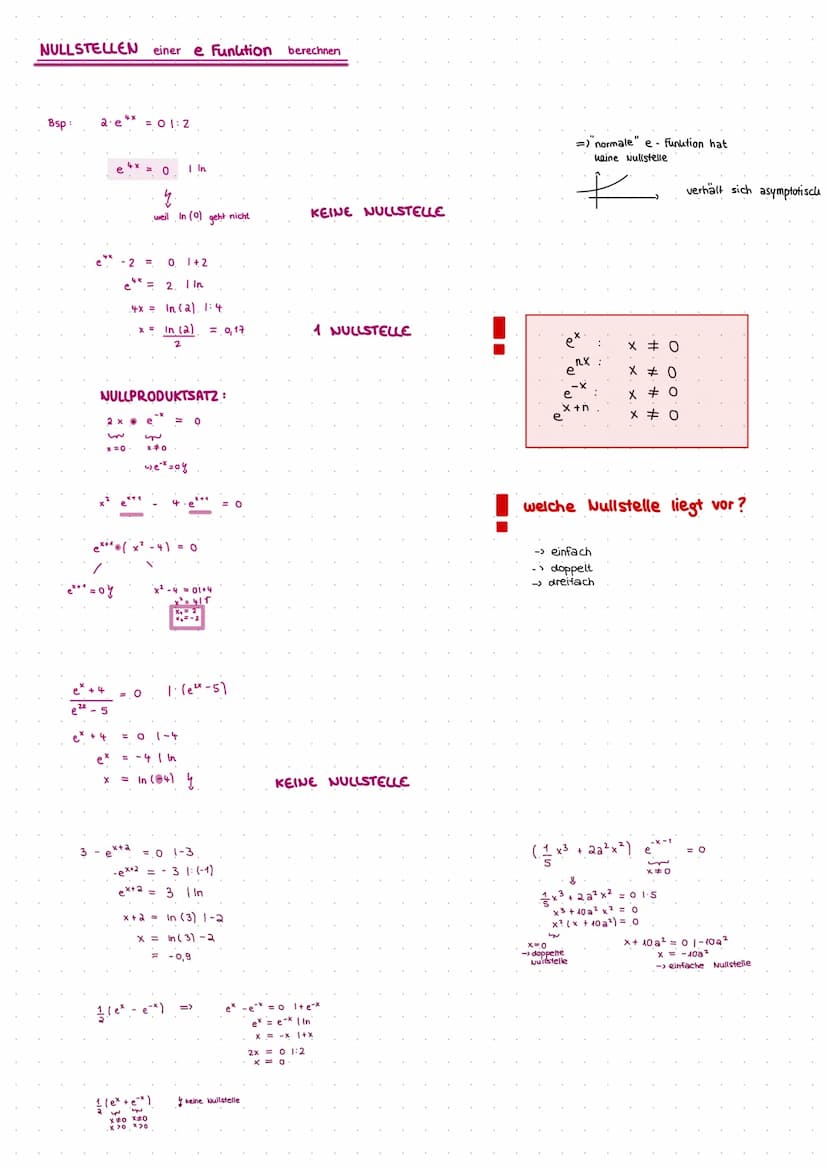 NULLSTELLEN einer e Funktion berechnen
Bsp: 2·e^4x = 0 |:2
e^4x = 0 | ln
weil ln(0) geht nicht
KEINE NULLSTELLE
=> "normale" e-Funktion hat
keine Nullstelle
verhält sich asymptotisch
e^4x - 2 = 0 |+2
e^4x = 2 | ln
4x = ln(2) |:4
x = ln(2)/2 = 0,17
1 NULLSTELLE
!
e^x : x ≠ 0
e^nx : x ≠ 0
e^-x : x ≠ 0
e^x+n : x ≠ 0
NULLPRODUKTSATZ:
2x • e^-x = 0
x=0 x≠0
we^-x=0 ↯
x² e^x+1 - 4·e^x+1 = 0
e^x+1 •(x² - 4) = 0
e^x+1 = 0 ↯ x² - 4 = 0 |+4
x² = 4 |√
x₁ = 2
x₂ = -2
! welche Nullstelle liegt vor?
-> einfach
-> doppelt
-> dreifach
(e^x + 4)/(e^2x - 5) = 0 |·(e^2x - 5)
e^x + 4 = 0 |-4
e^x = -4 | ln
x = ln(-4) ↯
KEINE NULLSTELLE
3 - e^x+2 = 0 |-3
-e^x+2 = -3 |:(-1)
e^x+2 = 3 | ln
x+2 = ln(3) |-2
x = ln(3) - 2
= -0,9
(1/5 x³ + 2a²x²) e^-x-1 = 0
x≠0
⇓
1/5 x³ + 2a²x² = 0 |·5
x³ + 10a²x² = 0
x²(x + 10a²) = 0
x=0
-> doppelte
Nullstelle
x + 10a² = 0 |-10a²
x = -10a²
-> einfache Nullstelle
1/2 (e^x - e^-x) => e^x - e^-x = 0 |+e^-x
e^x = e^-x | ln
x = -x |+x
2x = 0 |:2
x = 0
1/2 (e^x + e^-x) ↯ keine Nullstelle
x≠0 x≠0
x>0 x>0